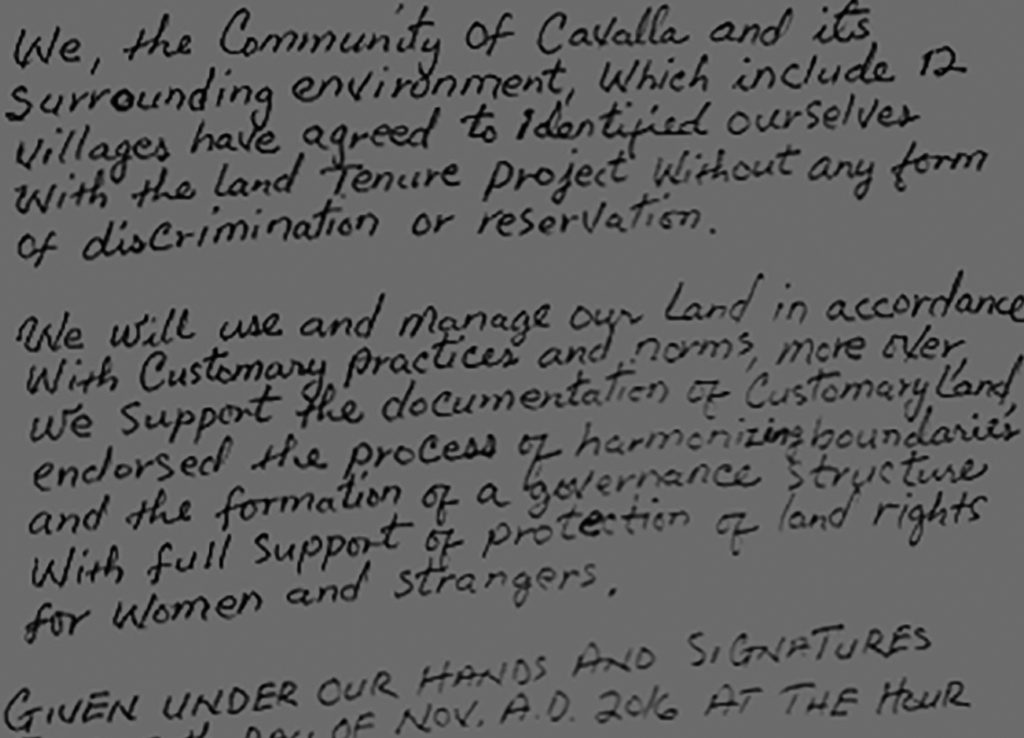 We, the Community of Cavalla and its
Surrounding environment, Which include 12
villages have agreed to identified ourselves
With the land Tenure project Without any form
of discrimination or reservation.
We will use and manage our Land in accordance
With Customary practices and norms, more over,
we support the documentation of Customary Land,
endorsed the process of harmonizing boundaries
and the formation of a governance structure
With full support of protection of land rights
for Women and strangers.
GIVEN UNDER OUR HANDS AND SIGNATURES
DAY OF NOV. A.D. 2016 AT THE HOUR